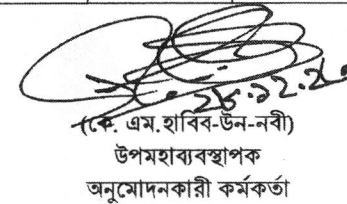 (কে. এম.হাবিব-উন-নবী)
উপমহাব্যবস্থাপক
অনুমোদনকারী কর্মকর্তা